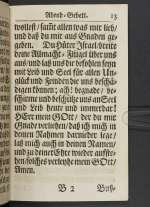 Abend-Gebett. 13
wollest/ sammt allen was mir lieb/
und daß du mir aus Gnaden ge-
geben. Du Hüter Israel breite
deine Allmacht- Flügel über uns
aus/ und laß uns die befohlen seyn
mit Leib und Seel für allen Un-
glück und Feinden die uns beschä-
digen können; ach! begnade/ be-
schirme und beschütze uns an Seel
und Leib heute und immerdar!
HErr mein GOtt/ der du mit
Gnade verleihen/ daß ich mich in
deinen Nahmen darnieder lege/
laß mich auch in deinen Namen/
und zu deiner Ehr wieder aufste-
hen/ solches verleyhe mein GOtt/
Amen.
B 2 Buß-